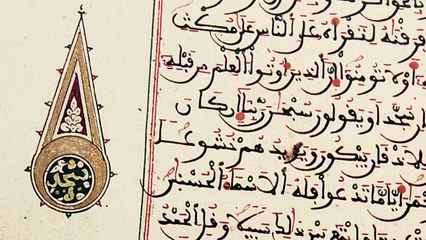 فرقنه لتقرأه على الناس على مكث
أو لا تؤمنوا إن الذين أوتوا العلم من قبله
سجدا ويقولون سبحن ربنا إن كان
للاذقان يبكون ويزيدهم خشوعا
أيا ما تدعوا فله الاسماء الحسنى
بين ذلك سبيلا وقل الحمد